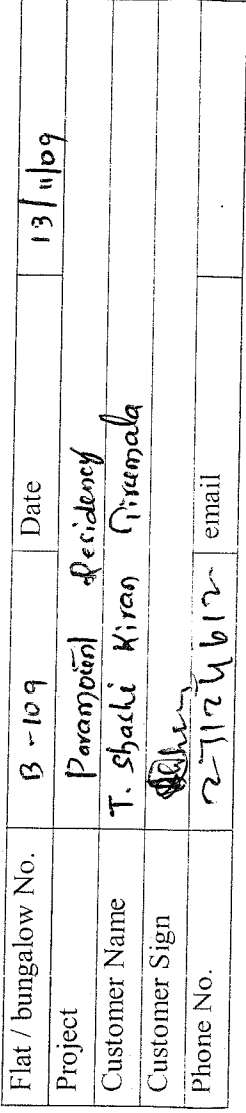 Flat / bungalow No. B - 109 Date 13/11/09
Project Paramount Residency
Customer Name T. Shashi Kiran Tirumala
Customer Sign
Phone No. 27124612 email